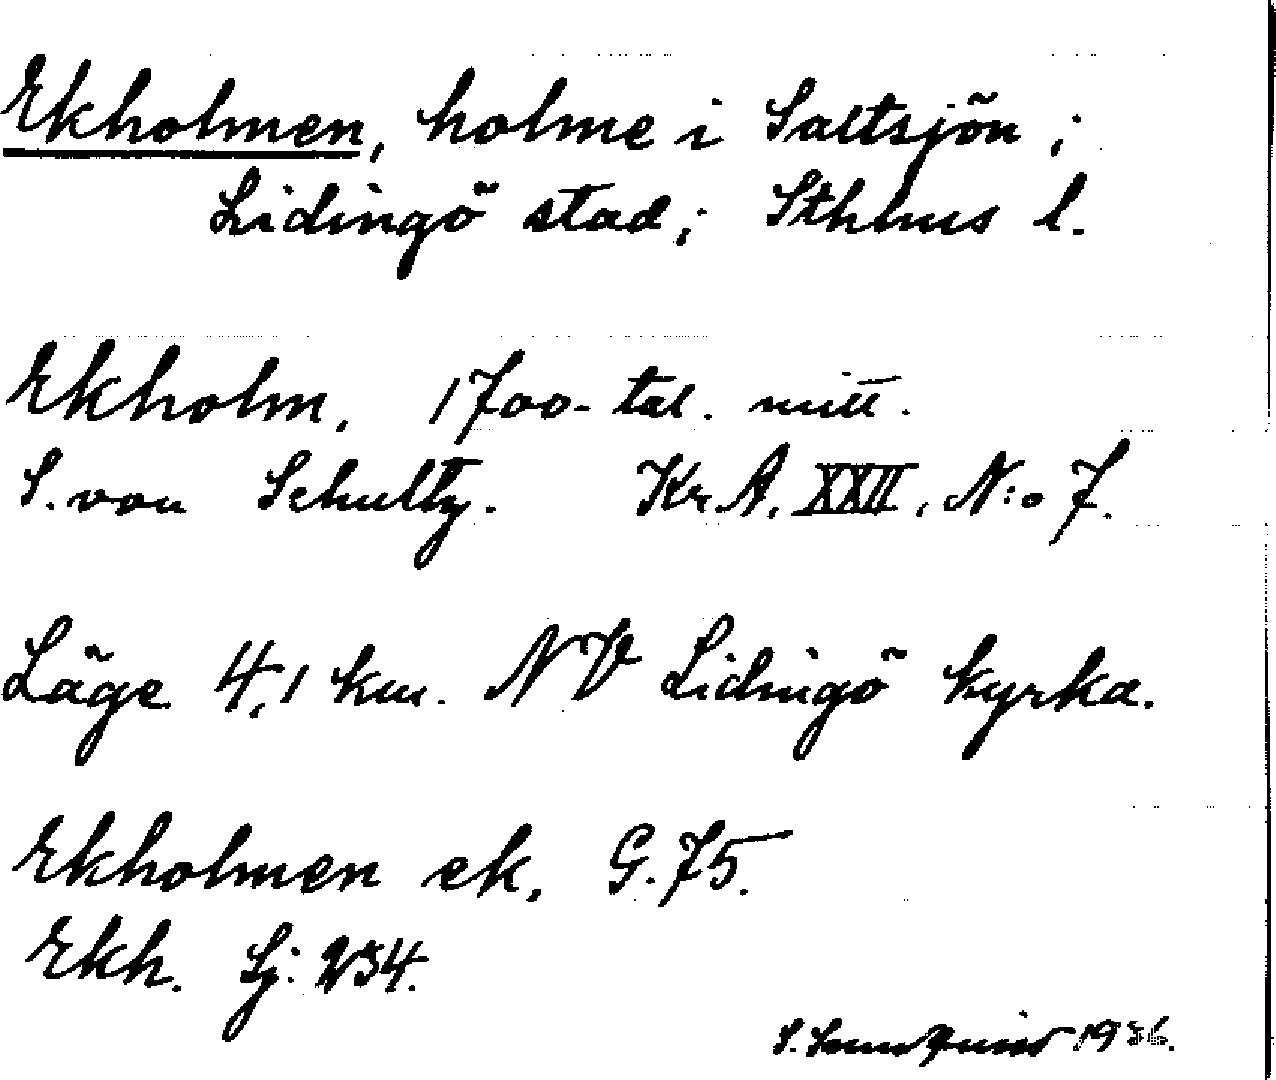 Ekholmen, holme i Saltsjön;
Lidingö stad; Sthlms l.
Ekholm. 1700-tal. mitt.
S. von Schultz. Kr.A. XXII, N:o 7.
Läge 4,1 km. NV Lidingö kyrka.
Ekholmen ek. G. 75.
Ekh. Sj: 234.
S. 1936.